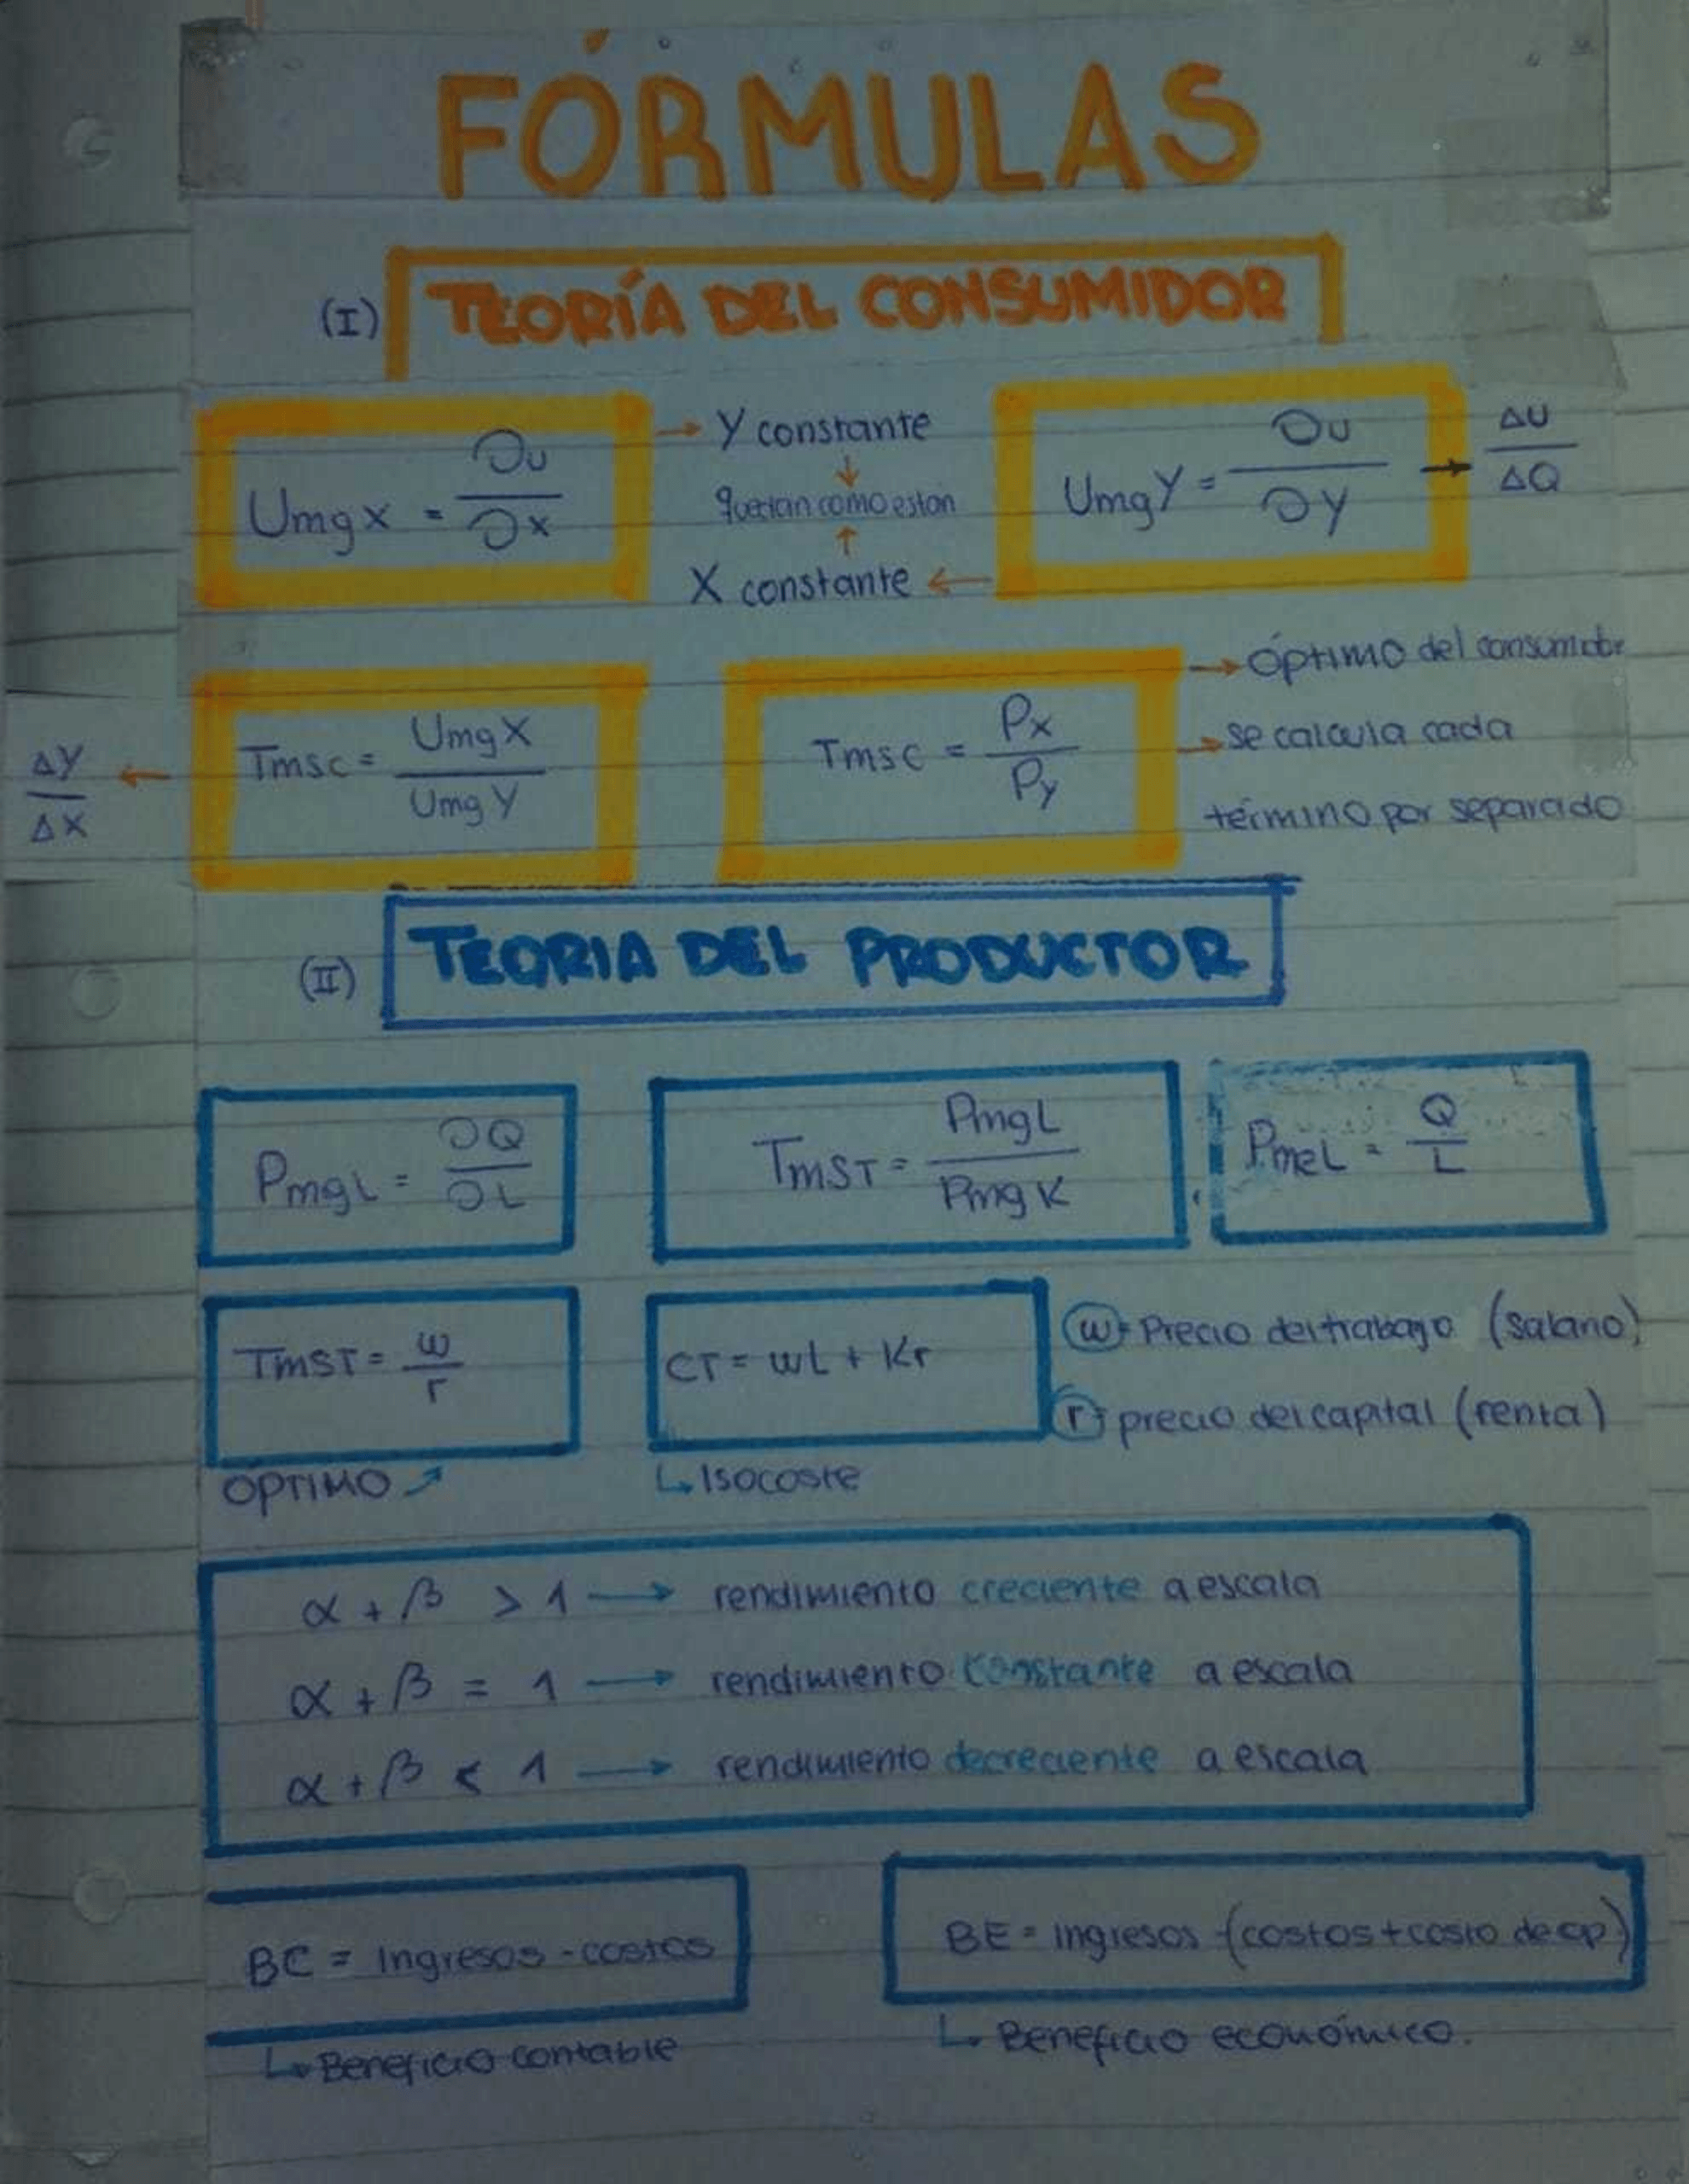 FÓRMULAS
(I) TEORÍA DEL CONSUMIDOR
UmgX = ∂U/∂X → Y constante
↓
quedan como estan
↑
X constante ←
UmgY = ∂U/∂Y → ΔU/ΔQ
ΔY/ΔX ← Tmsc = UmgX/UmgY
Tmsc = Px/Py → óptimo del consumidor
→ se calcula cada
término por separado
(II) TEORIA DEL PRODUCTOR
PmgL = ∂Q/∂L
TmST = PmgL/PmgK
PmeL = Q/L
TmST = w/r
OPTIMO ↗
CT = wL + Kr
↳ Isocoste
w → Precio del trabajo (salario)
r → precio del capital (renta)
α + β > 1 → rendimiento creciente a escala
α + β = 1 → rendimiento constante a escala
α + β < 1 → rendimiento decreciente a escala
BC = Ingresos - costos
↳ Beneficio contable
BE = Ingresos - (costos + costo de op)
↳ Beneficio económico.